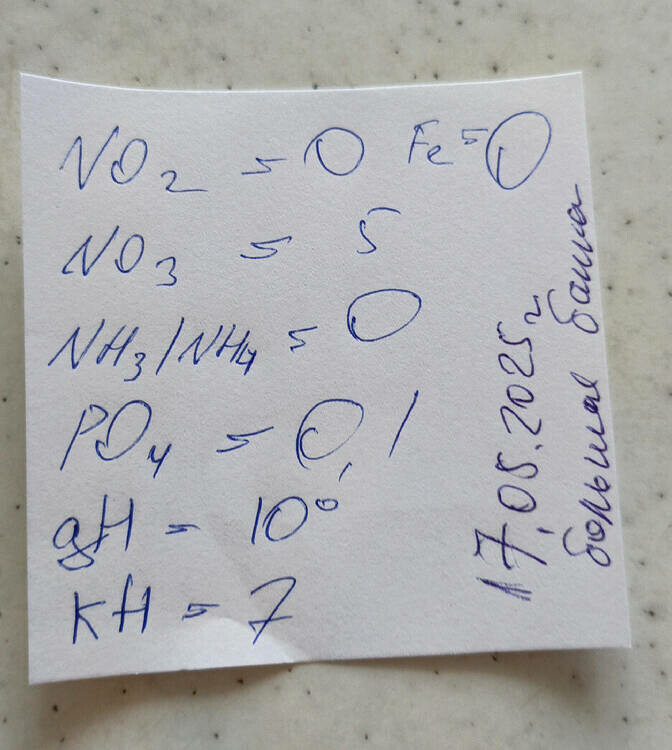 NO2 = 0 Fe = 0
NO3 = 5
NH3/NH4 = 0
PO4 = 0,1
gH = 10°
KH = 7
17.05.2025г
большая банка